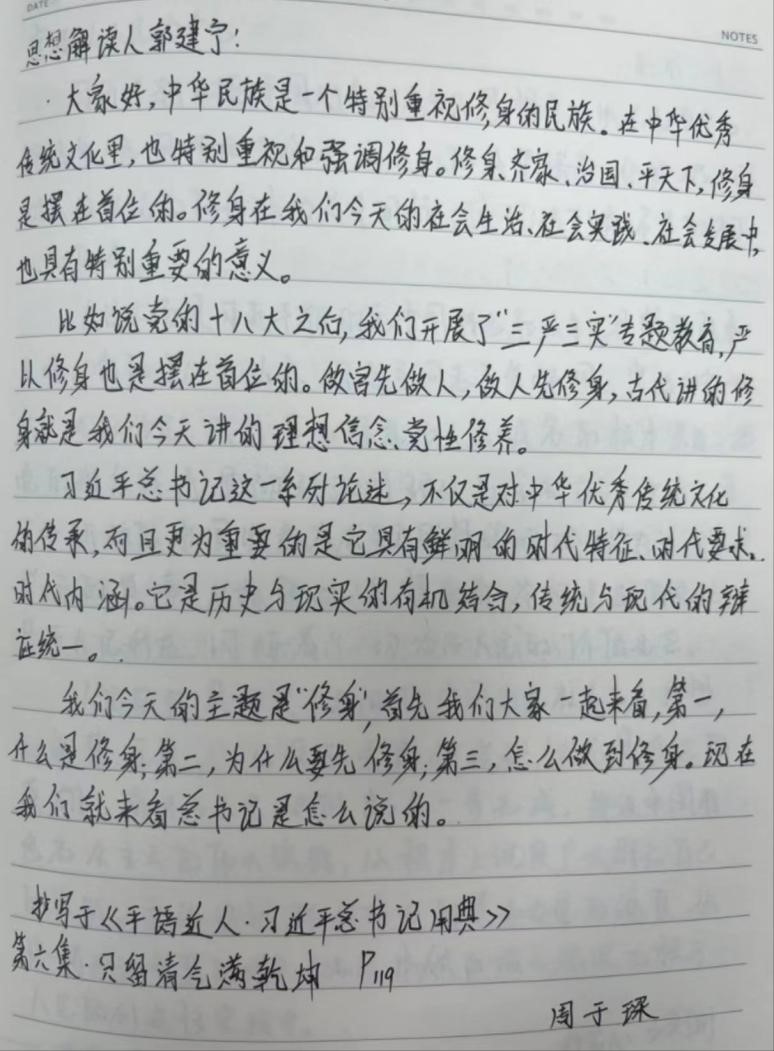 DATE
NOTES
思想解读人郭建宁:
大家好,中华民族是一个特别重视修身的民族。在中华优秀
传统文化里,也特别重视和强调修身。修身、齐家、治国、平天下,修身
是摆在首位的。修身在我们今天的社会生活、社会实践、社会发展中,
也具有特别重要的意义。
比如说党的十八大之后,我们开展了“三严三实”专题教育,严
以修身也是摆在首位的。做官先做人,做人先修身,古代讲的修
身就是我们今天讲的理想信念、党性修养。
习近平总书记这一系列论述,不仅是对中华优秀传统文化
的传承,而且更为重要的是它具有鲜明的时代特征、时代要求、
时代内涵。它是历史与现实的有机结合,传统与现代的辩
证统一。
我们今天的主题是“修身”,首先我们大家一起来看,第一,
什么是修身;第二,为什么要先修身;第三,怎么做到修身。现在
我们就来看总书记是怎么说的。
抄写于《平语近人·习近平总书记用典》
第六集·只留清气满乾坤 P119
周于琛